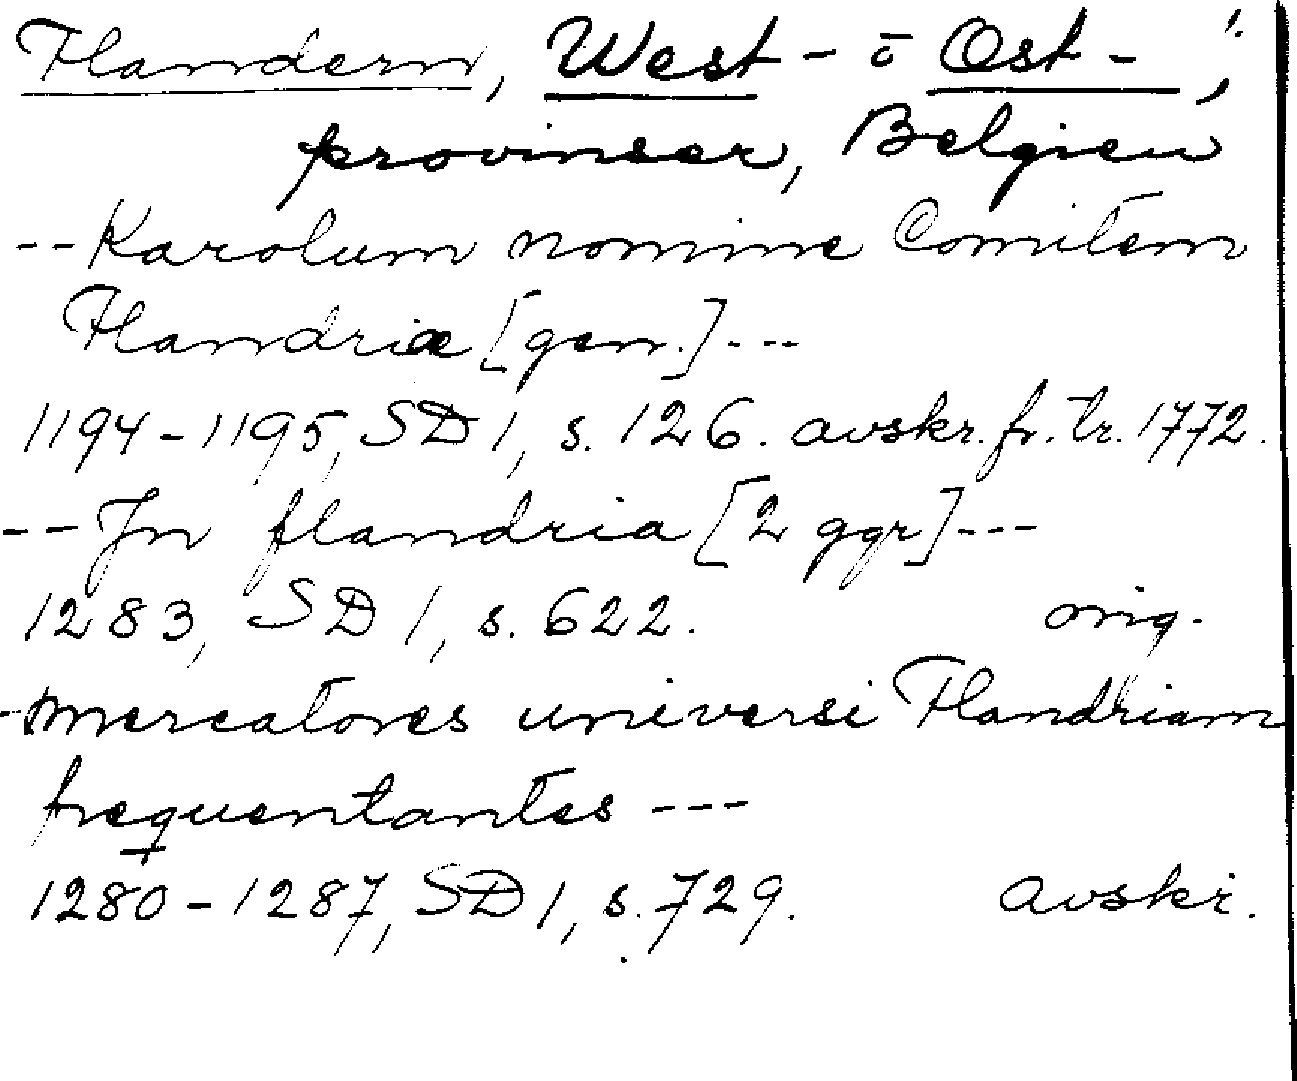 Flandern, West- ō Ost-,
provinser, Belgien
-- Karolum nomine Comitem
Flandriæ [gen.] ---
1194-1195, SD 1, s. 126. avskr. fr. tr. 1772.
-- Jn flandria [2 ggr] ---
1283, SD 1, s. 622. orig.
- mercatores universi Flandriam
frequentantes ---
1280-1287, SD 1, s. 729. avskr.